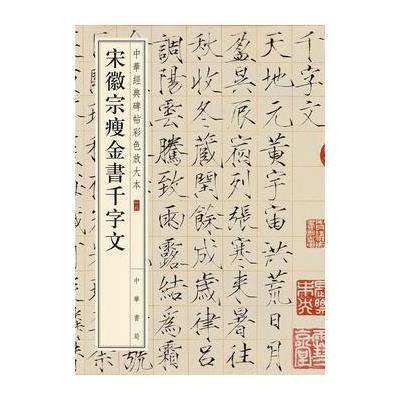 中華經典碑帖彩色放大本
宋徽宗瘦金書千字文
中華書局
千字文
天地元黃宇宙洪荒日月
盈昃辰宿列張寒來暑往
秋收冬藏閏餘成歲律呂
調陽雲騰致雨露結爲霜
號